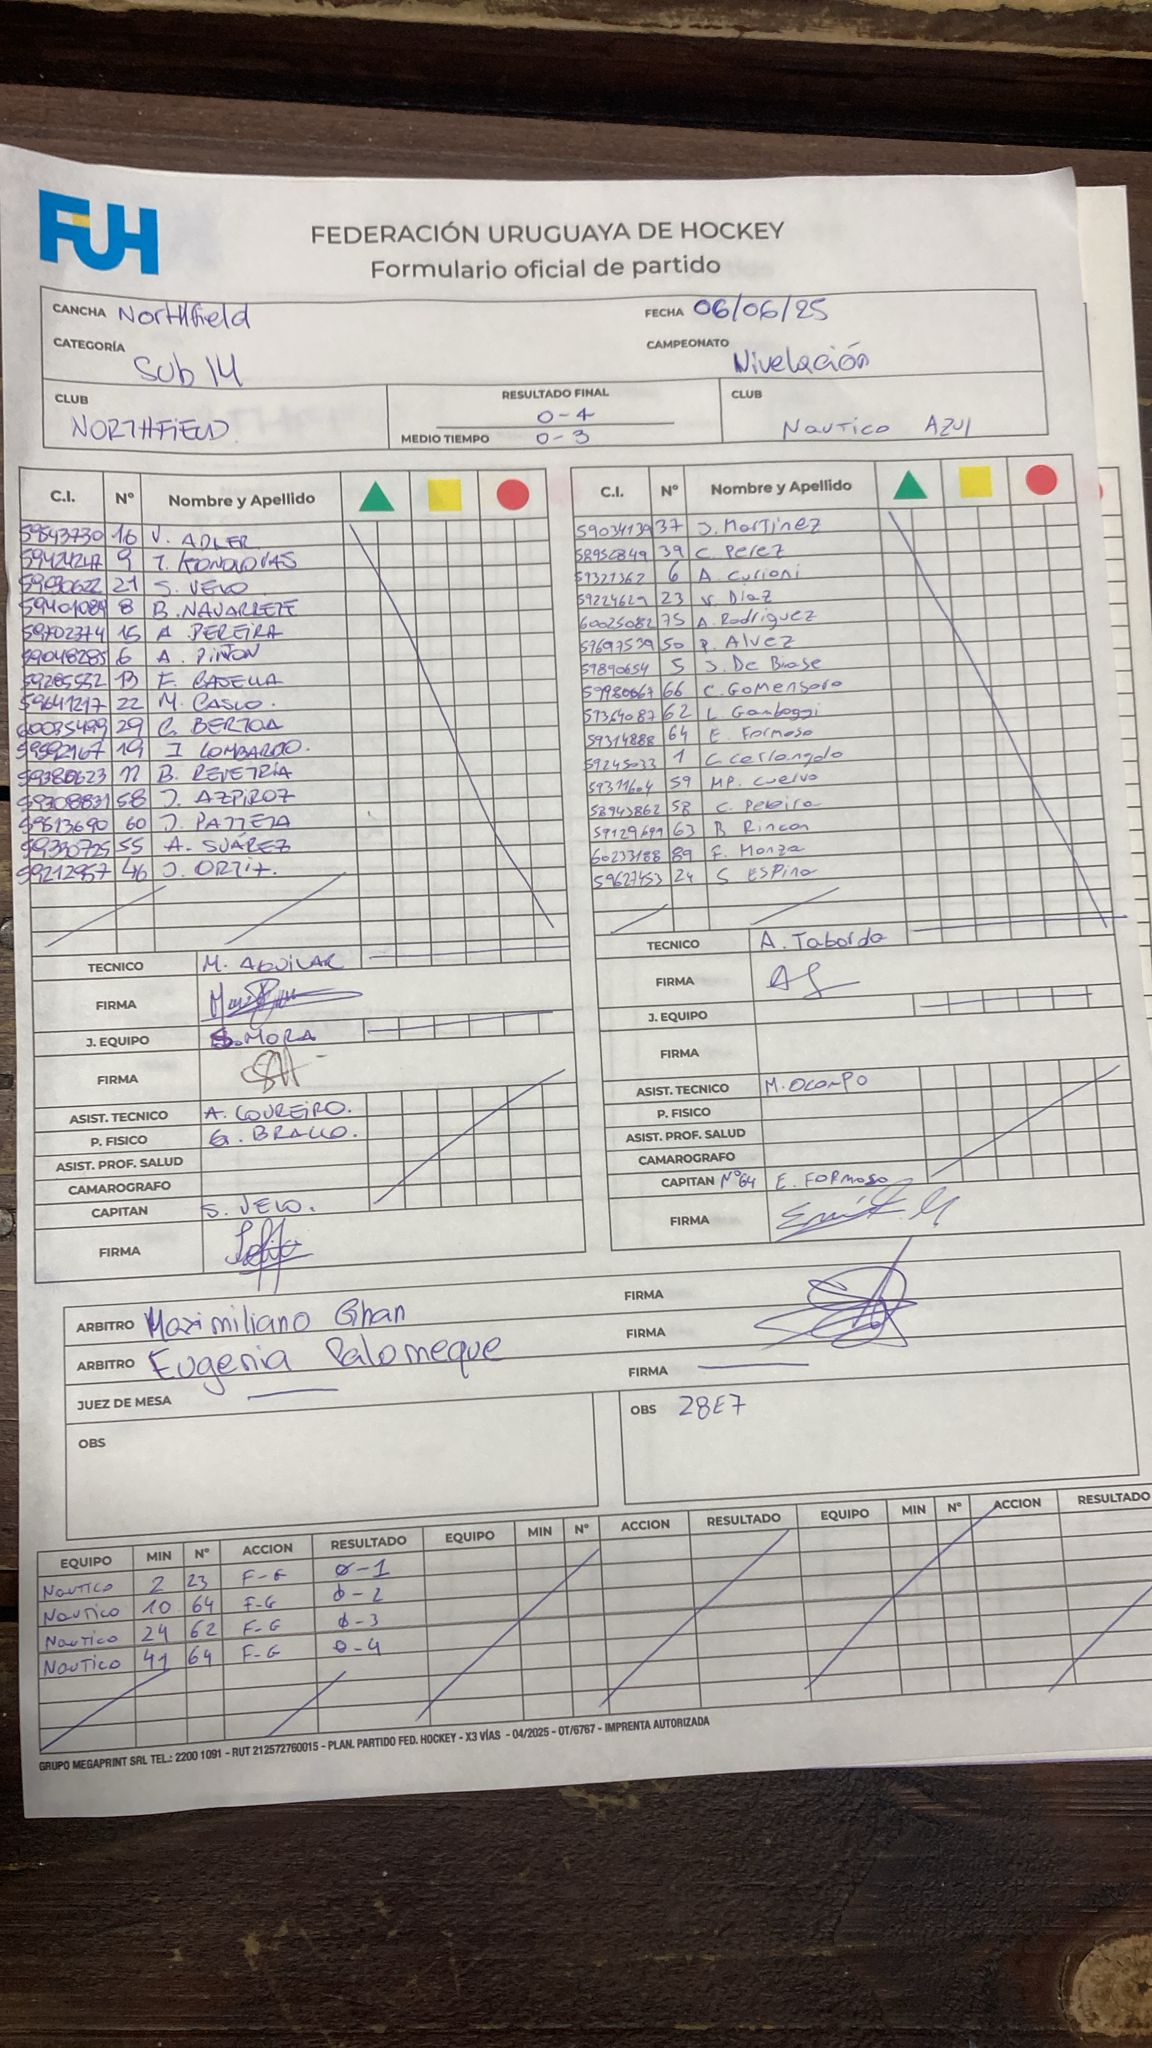 FUH
FEDERACIÓN URUGUAYA DE HOCKEY
Formulario oficial de partido
CANCHA Northfield FECHA 06/06/25
CATEGORÍA Sub 14 CAMPEONATO Nivelación
CLUB NORTHFIELD RESULTADO FINAL 0-4 CLUB Nautico Azul
MEDIO TIEMPO 0-3
C.I. Nº Nombre y Apellido
59543730 16 V. ADLER
59424247 9 T. KONONOVAS
59090622 21 S. VELO
59401089 8 B. NAVARRETE
59702374 15 A PEREIRA
59048285 6 A. PIÑON
59285532 13 F. CASELLA
59641217 22 M. CASCO.
60035499 29 C. BERTOA
59592167 19 I LOMBARDO.
59380623 11 B. REVETRIA
59308831 58 J. AZPIROZ
59513690 60 J. PATTETA
59390725 55 A. SUÁREZ
59212957 46 J. ORTIZ.
TECNICO M. AGUILAR
FIRMA
J. EQUIPO S. MORA
FIRMA
ASIST. TECNICO A. LOUREIRO.
P. FISICO G. BRALLO.
ASIST. PROF. SALUD
CAMAROGRAFO
CAPITAN S. VELO.
FIRMA
C.I. Nº Nombre y Apellido
59034139 37 J. Martinez
58952849 39 C. Perez
59321362 6 A. Curioni
59224629 23 V. Diaz
60025082 75 A. Rodriguez
59697539 50 P. Alvez
59890654 5 J. De Buose
59980667 66 C. Gomensoro
59364087 62 L. Gamboggi
59314888 64 E. Formoso
59245033 1 C. Cerlangolo
59311604 59 MP. Cuervo
58943862 58 C. Pereira
59129699 63 B Rincon
60233188 89 F. Monza
59627453 24 S ESPino
TECNICO A. Taborda
FIRMA
J. EQUIPO
FIRMA
ASIST. TECNICO M. OCAMPO
P. FISICO
ASIST. PROF. SALUD
CAMAROGRAFO
CAPITAN Nº64 E. FORMOSO
FIRMA
ARBITRO Maximiliano Ghan FIRMA
ARBITRO Eugenia Palomeque FIRMA
JUEZ DE MESA FIRMA
OBS
OBS 28E7
EQUIPO MIN Nº ACCION RESULTADO EQUIPO MIN Nº ACCION RESULTADO EQUIPO MIN Nº ACCION RESULTADO
Nautico 2 23 F-G 0-1
Nautico 10 64 F-G 0-2
Nautico 24 62 F-G 0-3
Nautico 41 64 F-G 0-4
GRUPO MEGAPRINT SRL TEL.: 2200 1091 - RUT 212572760015 - PLAN. PARTIDO FED. HOCKEY - X3 VÍAS - 04/2025 - OT/6767 - IMPRENTA AUTORIZADA